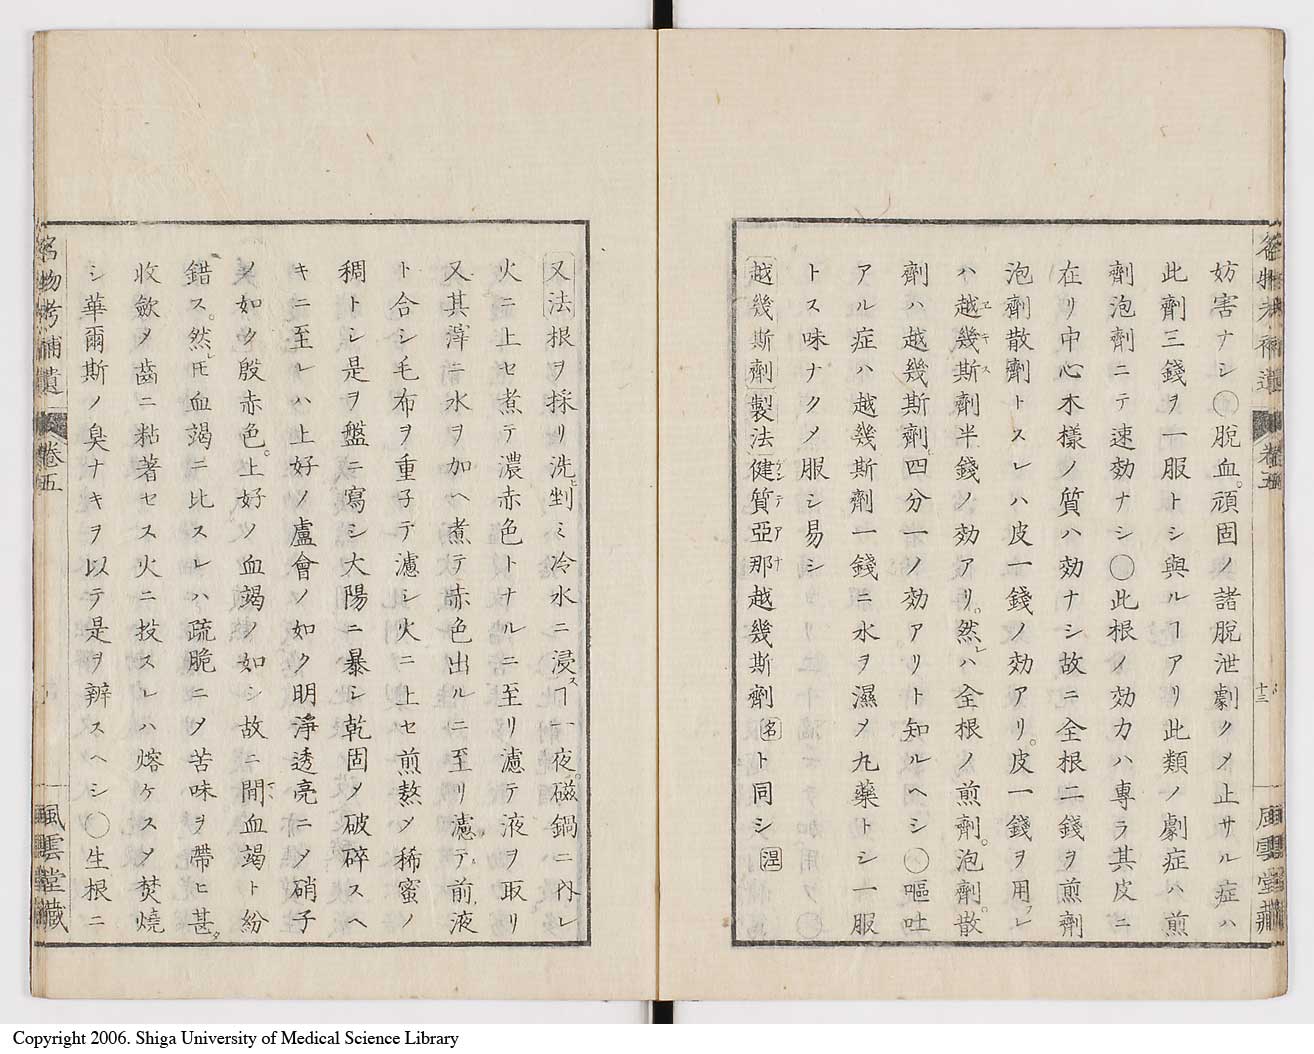 名物考補遺 卷五 十三 風雲堂藏
妨害ナシ〇脫血。頑固ノ諸脫泄劇クメ止サル症ハ
此劑三錢ヲ一服トシ與ルヿアリ此類ノ劇症ハ煎
劑泡劑ニテ速効ナシ〇此根ノ効力ハ專ラ其皮ニ
在リ中心木樣ノ質ハ効ナシ故ニ全根二錢ヲ煎劑
泡劑散劑トスレハ皮一錢ノ効アリ。皮一錢ヲ用フレ
ハ越幾斯劑半錢ノ効アリ。然レハ全根ノ煎劑。泡劑。散
エキス
劑ハ越幾斯劑四分一ノ効アリト知ルヘシ〇嘔吐
アル症ハ越幾斯劑一錢ニ水ヲ濕メ丸藥トシ一服
トス味ナクメ服シ易シ
越幾斯劑製法健質亞那越幾斯劑名ト同シ涅
ゲンテアナ
又法根ヲ採リ洗ヒ剉ミ冷水ニ浸スヿ一夜。磁鍋ニ內レ
火ニ上セ煮テ濃赤色トナルニ至リ濾テ液ヲ取リ
又其滓ニ水ヲ加ヘ煮テ赤色出ルニ至リ濾テ前液
ト合シ毛布ヲ重子テ濾シ火ニ上セ煎熬メ稀蜜ノ
稠トシ是ヲ盤ニ寫シ大陽ニ暴シ乾固メ破碎スヘ
キニ至レハ上好ノ盧會ノ如ク明淨透亮ニメ硝子
ノ如ク殷赤色。上好ノ血竭ノ如シ故ニ間血竭ト紛
錯ス。然レ𪜈血竭ニ比スレハ疏脆ニメ苦味ヲ帶ヒ甚タ
收斂メ齒ニ粘著セス火ニ投スレハ熔ケスメ焚燒
シ華爾斯ノ臭ナキヲ以テ是ヲ辨スヘシ〇生根ニ
名物考補遺 卷五 風雲堂藏
Copyright 2006. Shiga University of Medical Science Library